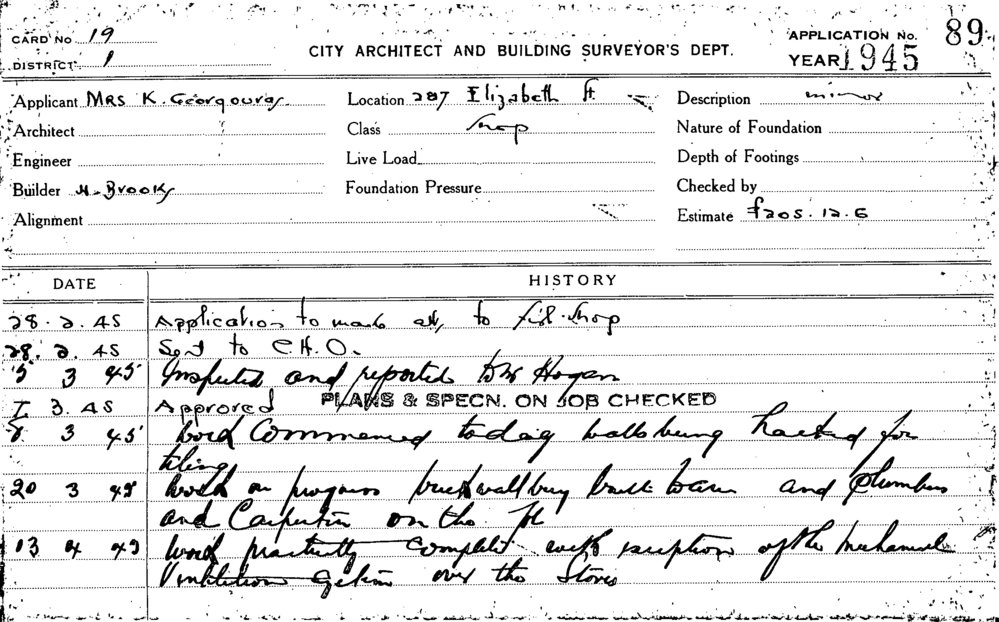 CARD NO 19
DISTRICT 1
CITY ARCHITECT AND BUILDING SURVEYOR'S DEPT.
APPLICATION No. 89
YEAR 1945
Applicant MRS K. Georgouras
Architect
Engineer
Builder H. Brooks
Alignment
Location 287 Elizabeth St.
Class Shop
Live Load
Foundation Pressure
Description minor
Nature of Foundation
Depth of Footings
Checked by
Estimate £205.12.6
DATE HISTORY
28.2.45 Application to make alt, to fish shop
28.2.45 Sent to C.H.O.
5 3 45 Inspected and reported Hogan
7 3.45 Approved PLANS & SPECN. ON JOB CHECKED
8 3 45 Work Commenced today walls being hacked for
tiling
20 3 45 Work in progress brick wall being built and Plumbers
and Carpenter on the Job
13 4 45 Work practically complete with exception of the mechanical
Ventilation System over the Stoves